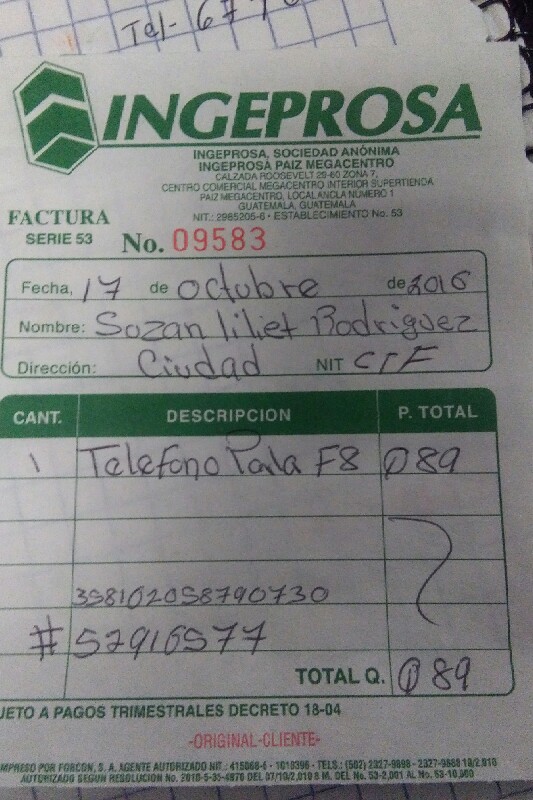 Tel- 677
INGEPROSA
INGEPROSA, SOCIEDAD ANÓNIMA
INGEPROSA PAIZ MEGACENTRO
CALZADA ROOSEVELT 29-60 ZONA 7,
CENTRO COMERCIAL MEGACENTRO INTERIOR SUPERTIENDA
PAIZ MEGACENTRO, LOCAL ANCLA NUMERO 1
GUATEMALA, GUATEMALA
NIT.: 2985205-6 • ESTABLECIMIENTO No. 53
FACTURA
SERIE 53 No. 09583
Fecha, 17 de octubre de 2016
Nombre: Sozan liliet Rodriguez
Dirección: Ciudad NIT C/F
CANT. DESCRIPCION P. TOTAL
1 Telefono F8 Q 89
358102058790730
# 57916577
TOTAL Q. Q 89
JETO A PAGOS TRIMESTRALES DECRETO 18-04
-ORIGINAL-CLIENTE-
MPRESO POR FORCON, S. A. AGENTE AUTORIZADO NIT.: 415068-6 - TELS.: (502) 2327-9898 - 2327-9888
AUTORIZADO SEGUN RESOLUCION No.